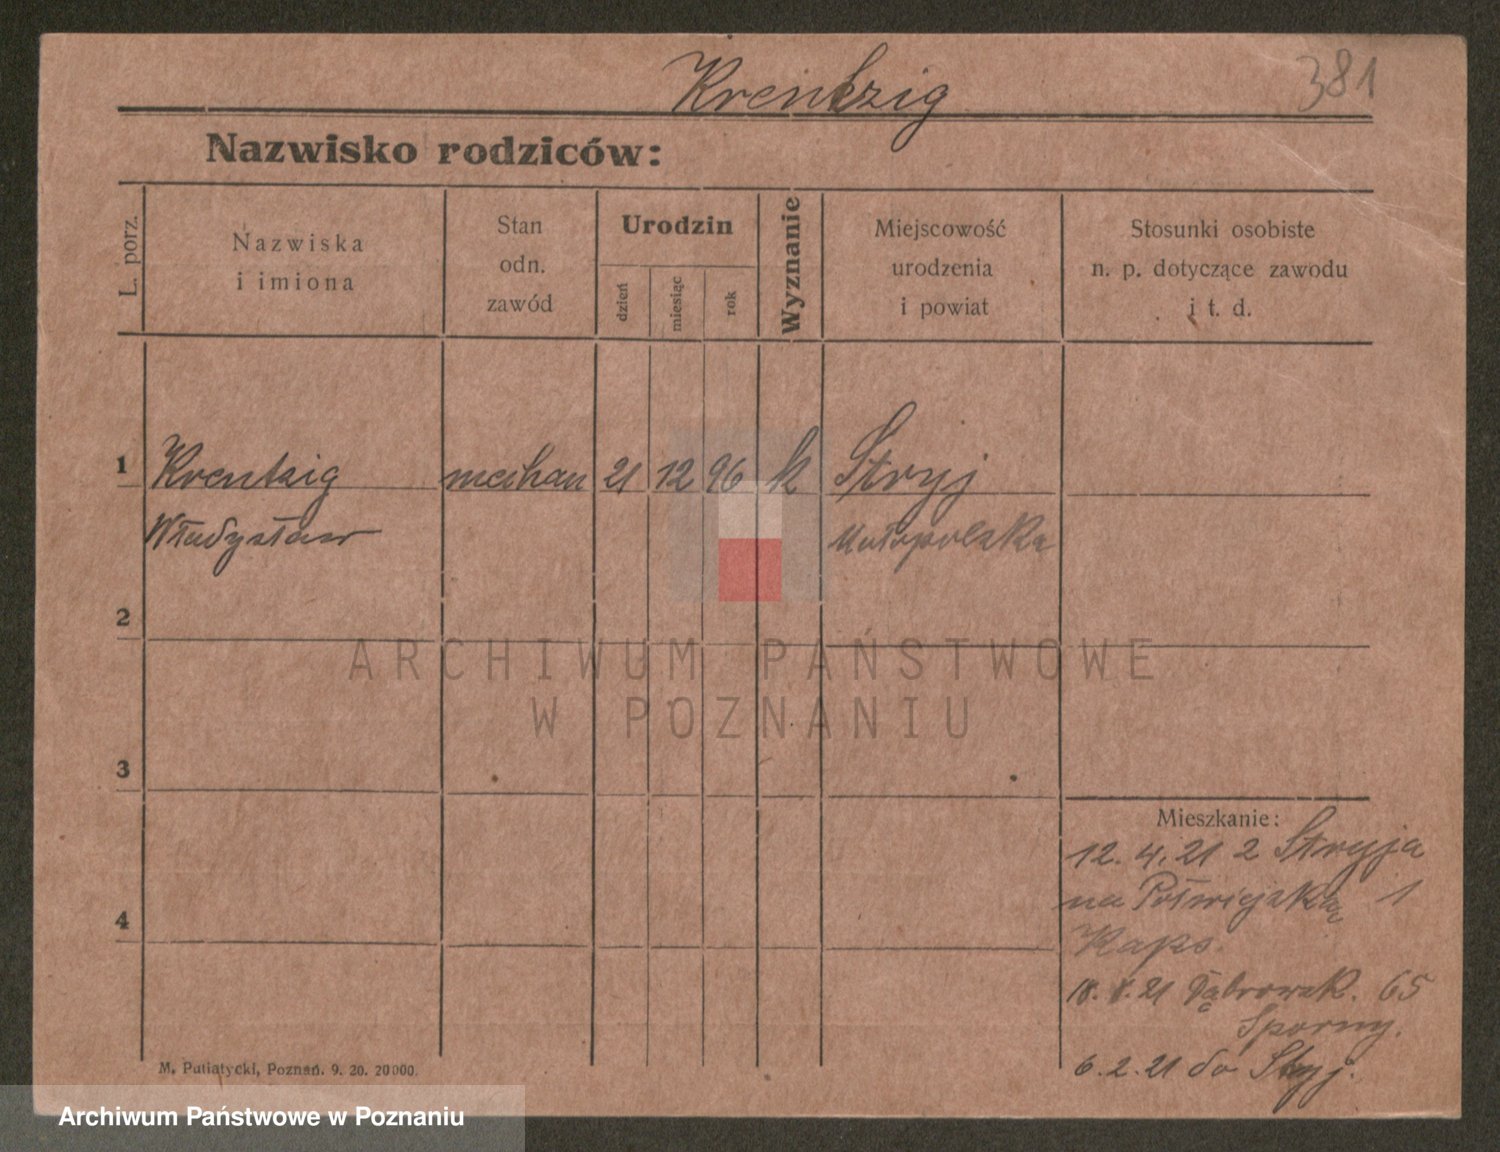 Krentzig
381
Nazwisko rodziców:
L. porz.
Nazwiska
i imiona
Stan
odn.
zawód
Urodzin
dzień
miesiąc
rok
Wyznanie
Miejscowość
urodzenia
i powiat
Stosunki osobiste
n. p. dotyczące zawodu
i t. d.
1 Krentzig mechan 21 12 96 k Stryj
Władysław Małopolska
2
3
4
Mieszkanie:
12. 4. 21 z Stryja
na Półwiejską 1
Kaps.
18. 21 Dąbrowsk. 65
Sporny.
6. 2. 21 do Stryj.
M. Putiatycki, Poznań. 9. 20. 20000.
ARCHIWUM PAŃSTWOWE
W POZNANIU
Archiwum Państwowe w Poznaniu